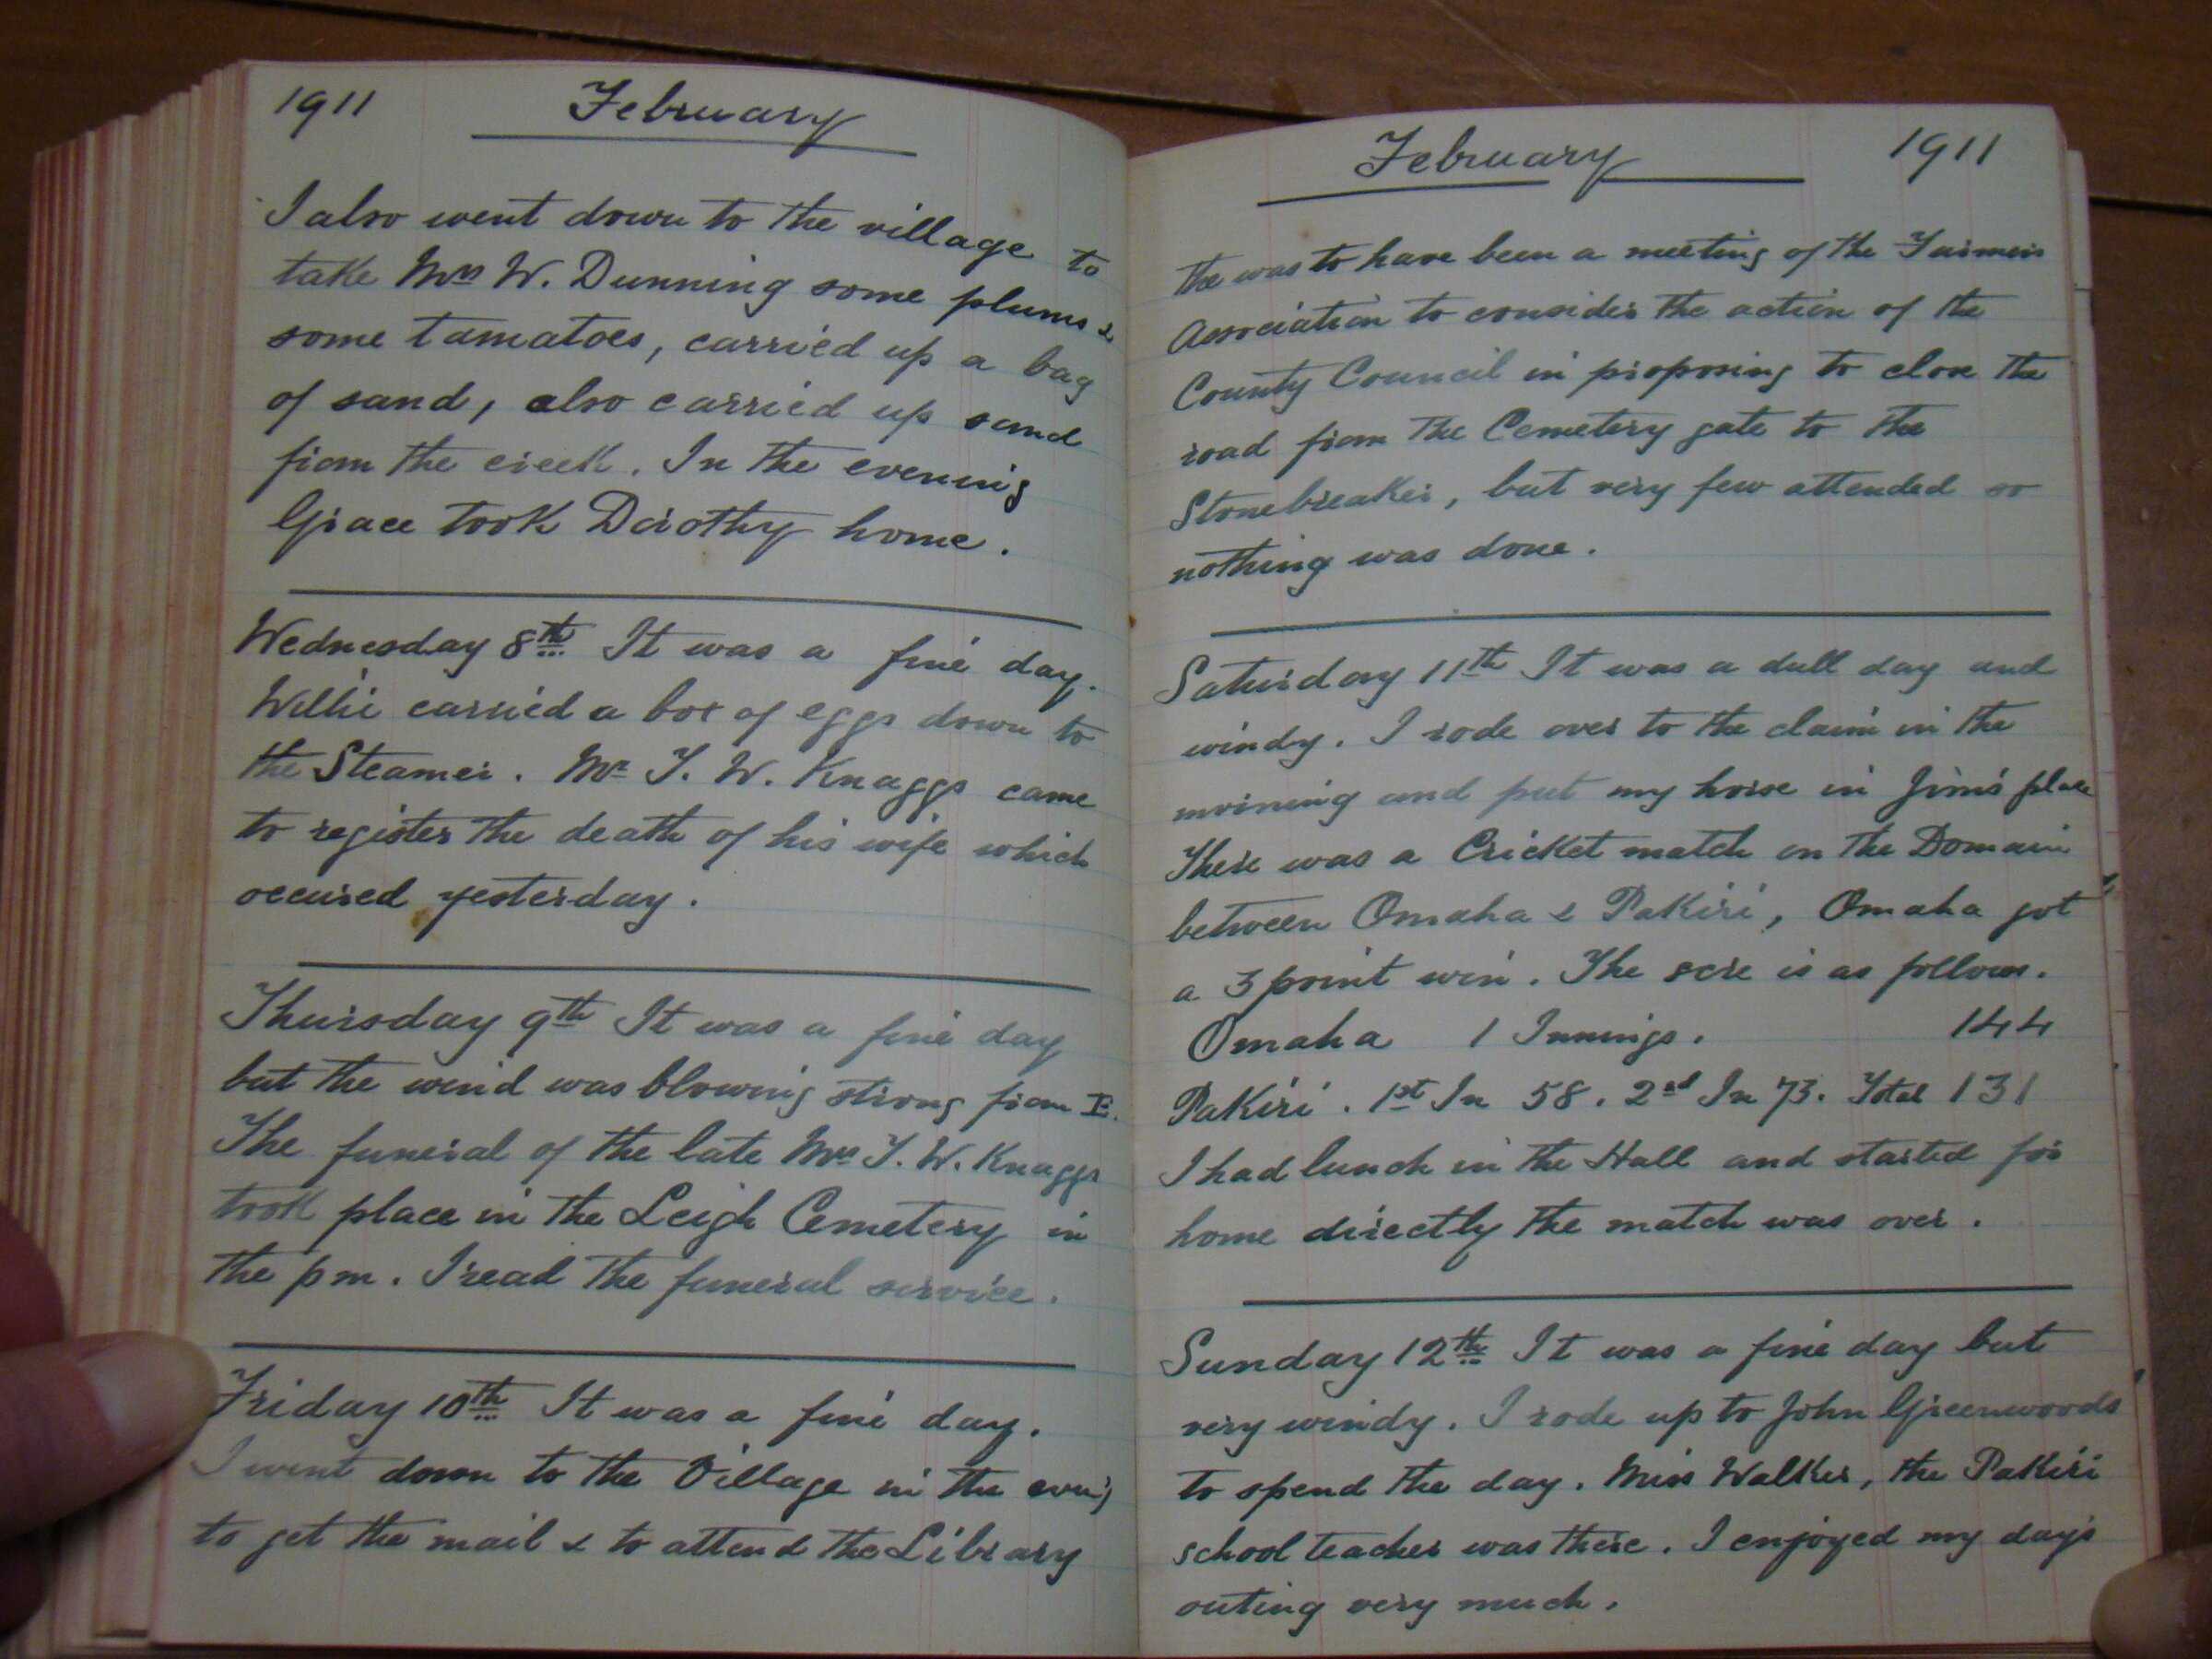 1911 February
I also went down to the village to
take Mrs W. Dunning some plums &
some tamatoes, carried up a bag
of sand, also carried up sand
from the creek. In the evening
Grace took Dorothy home.
Wednesday 8th It was a fine day.
Willie carried a box of eggs down to
the Steamer. Mr T. W. Knaggs came
to register the death of his wife which
occured yesterday.
Thursday 9th It was a fine day
but the wind was blowing strong from E.
The funeral of the late Mrs T. W. Knaggs
took place in the Leigh Cemetery in
the pm. I read the funeral service.
Friday 10th It was a fine day.
I went down to the Village in the eveng
to get the mail & to attend the Library
February 1911
The was to have been a meeting of the Farmers
Association to consider the action of the
County Council in proposing to close the
road from the Cemetery gate to the
Stonebreaker, but very few attended so
nothing was done.
Saturday 11th It was a dull day and
windy. I rode over to the claim in the
morning and put my horse in Jim's place
There was a Cricket match on the Domain
between Omaha & Pakiri, Omaha got
a 3 point win. The scre is as follows.
Omaha 1 Innings. 144
Pakiri. 1st In 58. 2nd In 73. Total 131
I had lunch in the Hall and started for
home directly the match was over.
Sunday 12th It was a fine day but
very windy. I rode up to John Greenwoods
to spend the day. Miss Walker, the Pakiri
school teacher was there. I enjoyed my day's
outing very much.